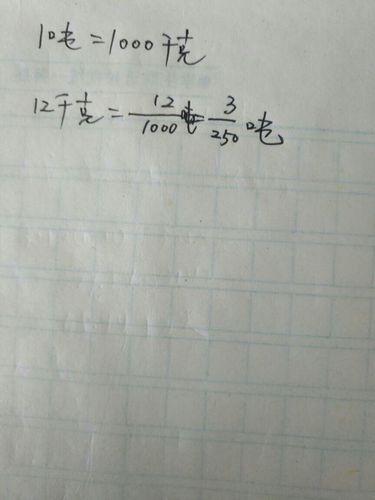 1吨=1000千克
12千克=12/1000吨=3/250吨